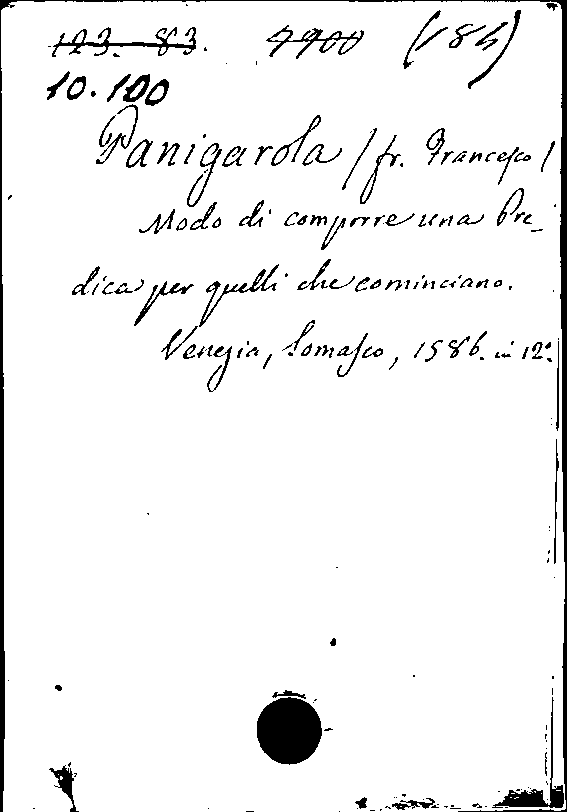 123.-83. 7900 (185)
10.100
Panigarola / fr. Francesco /
Modo di comporre una Pre-
dica per quelli che cominciano.
Venezia, Somasco, 1586. in 12°.